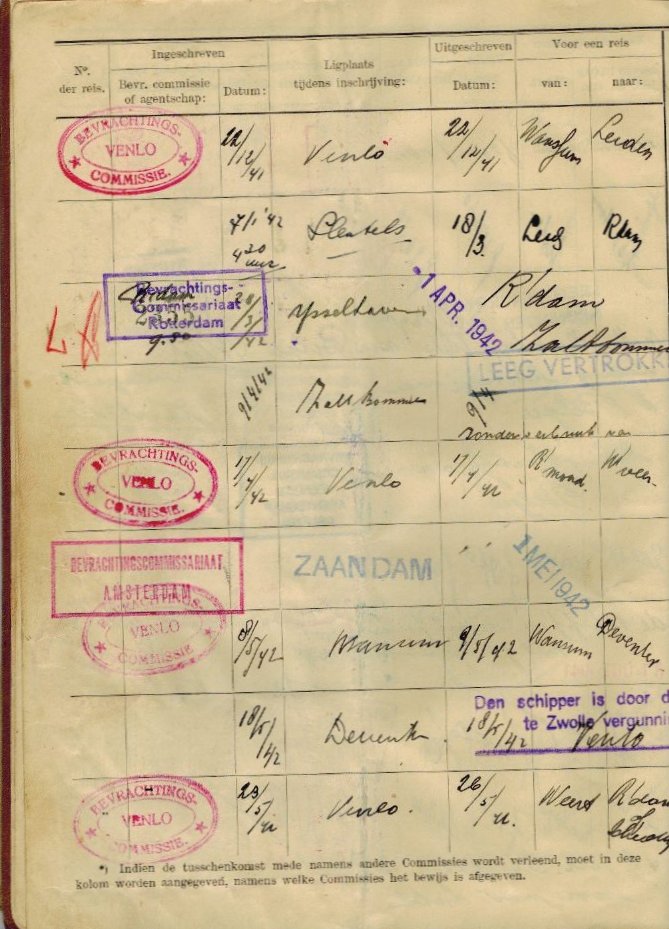 No.
der reis.
Ingeschreven
Bevr. commissie
of agentschap:
Datum:
Ligplaats
tijdens inschrijving:
Uitgeschreven
Datum:
Voor een reis
van:
naar:
BEVRACHTINGS-
VENLO
COMMISSIE.
22/12/41
Venlo
22/12/41
Wanssum
Leiden
7/1 '42
4 30 uur
18/3
R'dam
Bevrachtings-
Commissariaat
Rotterdam
9.30
20/3/42
IJsselhaven
-1 APR. 1942
R'dam
Zaltbommel
LEEG VERTROKKE
9/4/42
Zaltbommel
zonder
BEVRACHTINGS-
VENLO
COMMISSIE.
17/4/42
Venlo
17/4/42
R'mond.
BEVRACHTINGSCOMMISSARIAAT
AMSTERDAM
ZAANDAM
1 MEI 1942
VENLO
COMMISSIE
8/5/42
Wanssum
9/5/42
Wanssum
Deventer
18/5/42
Deventer
18/5/42
Den schipper is door d
te Zwolle vergunni
Venlo
BEVRACHTINGS-
VENLO
COMMISSIE.
23/5/42
Venlo.
26/5/42.
Weert
R'dam
*) Indien de tusschenkomst mede namens andere Commissies wordt verleend, moet in deze
kolom worden aangegeven, namens welke Commissies het bewijs is afgegeven.